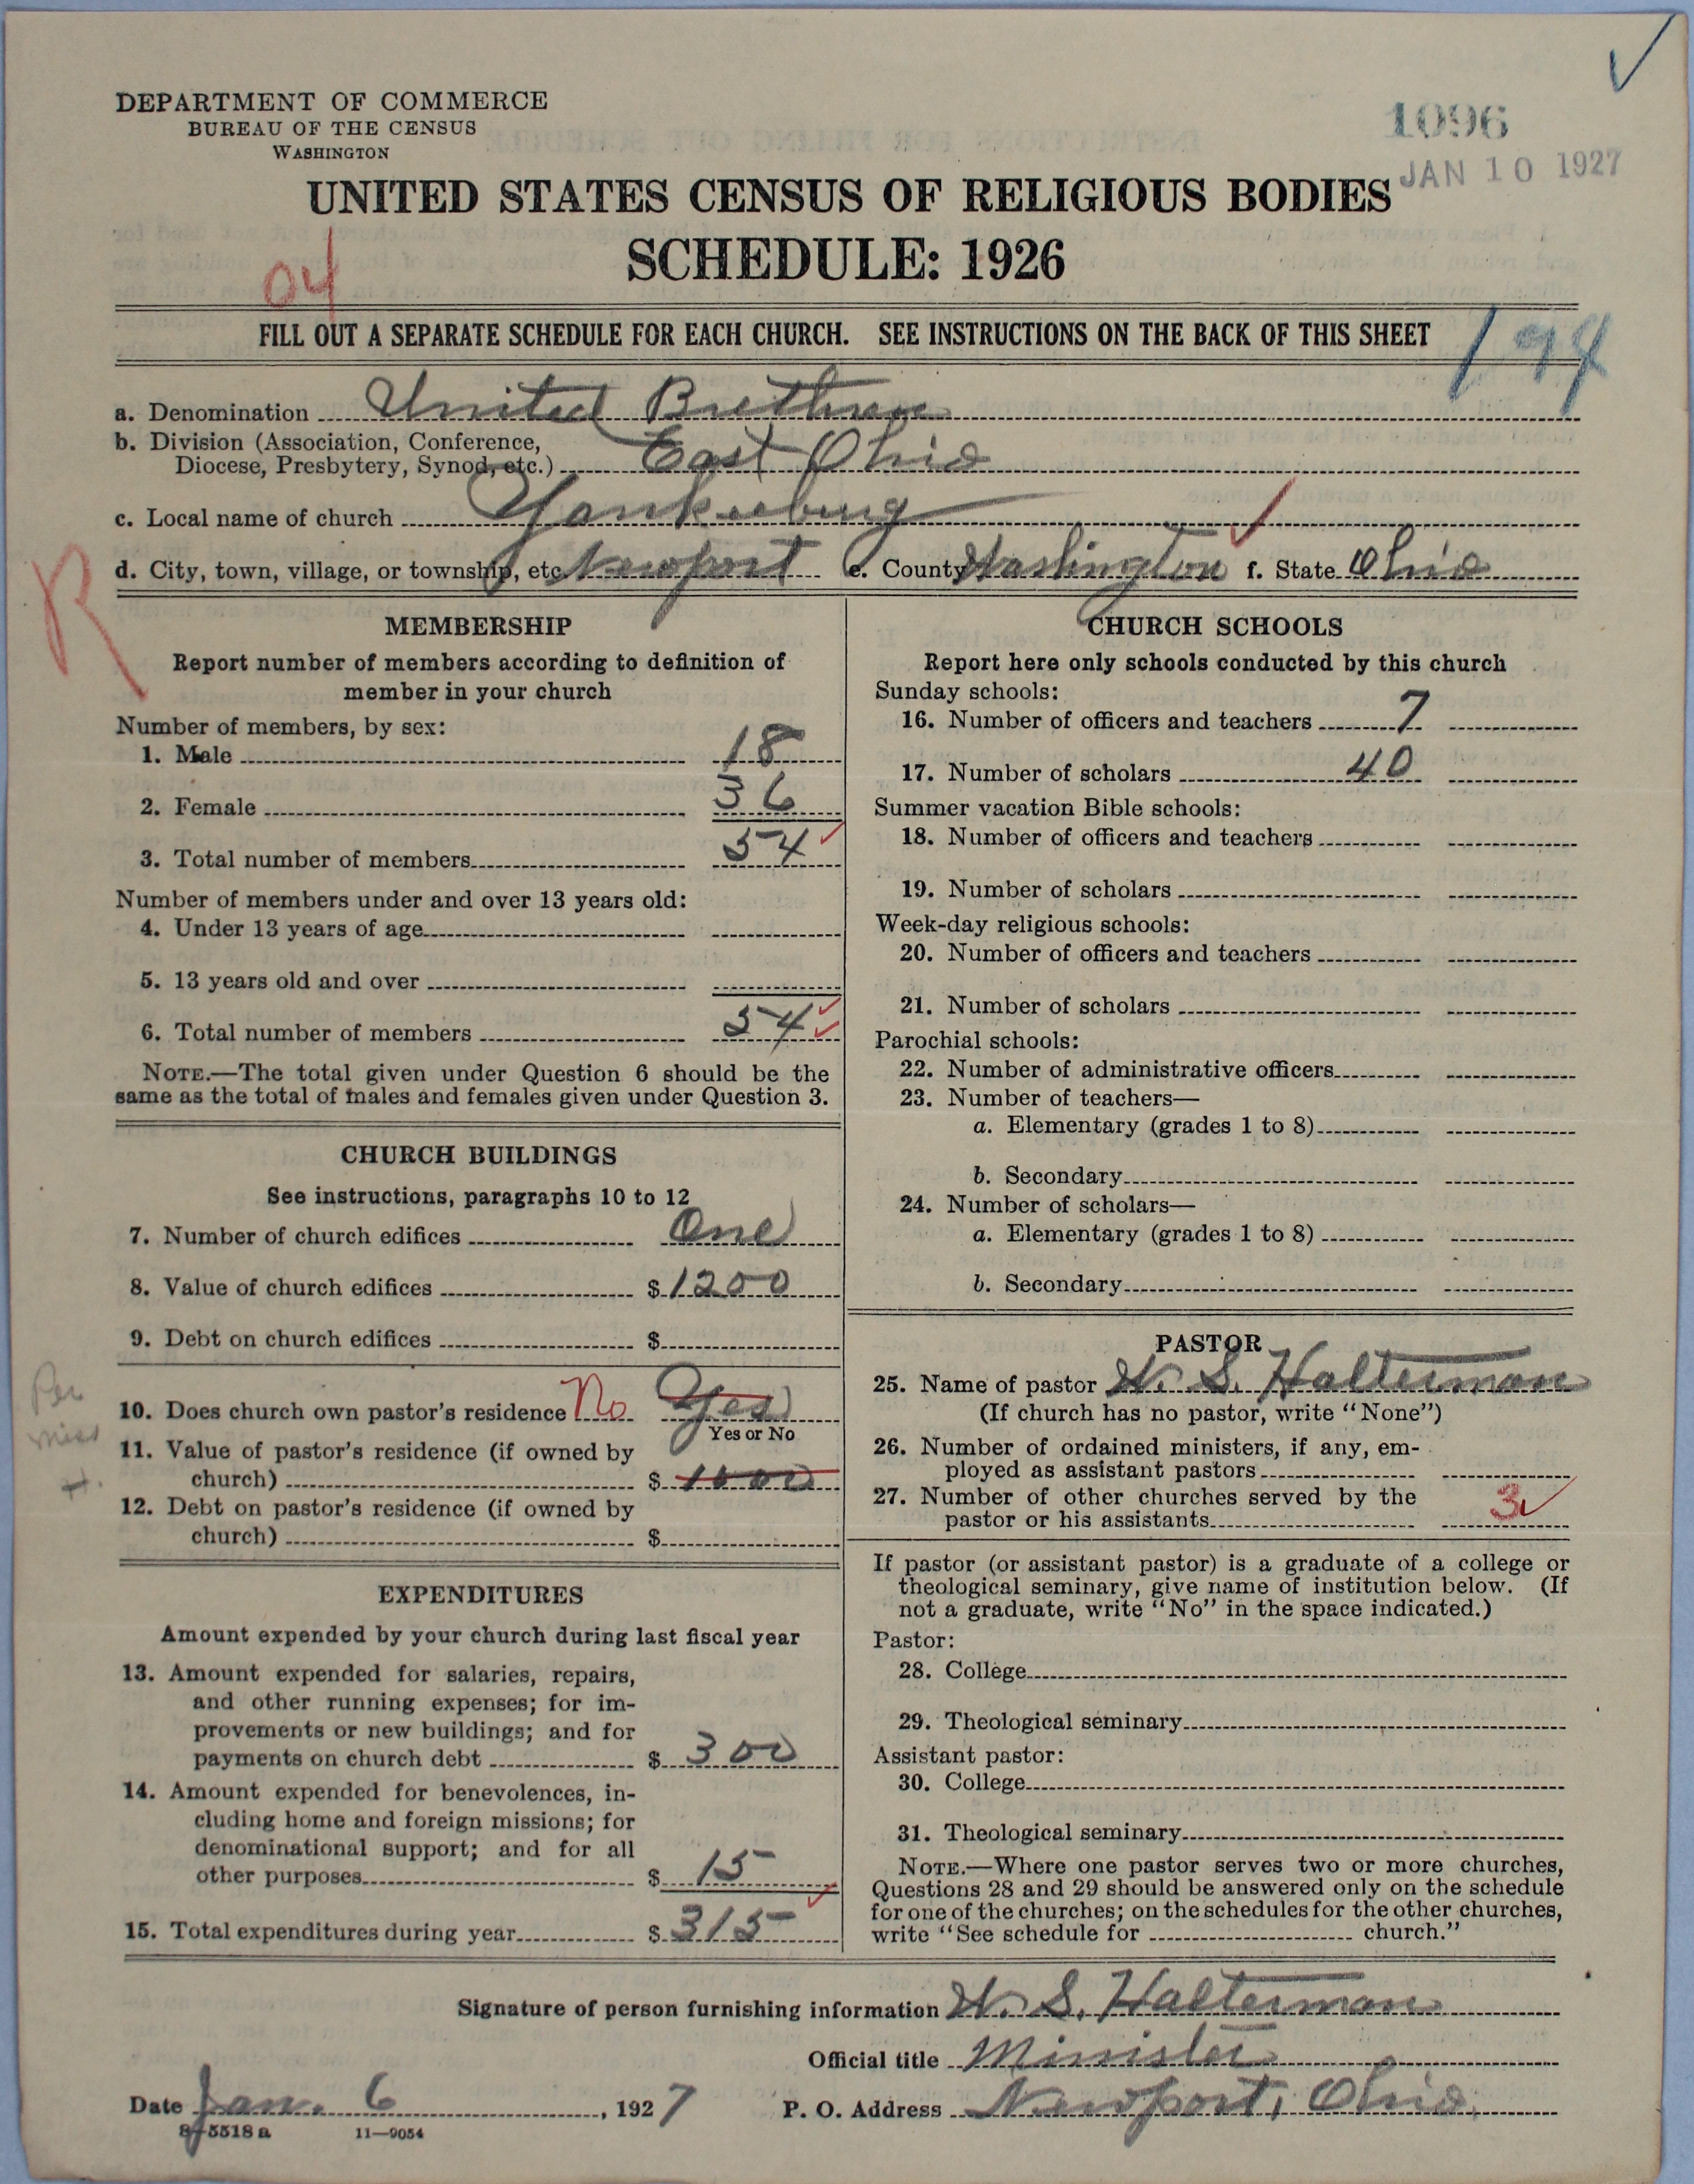 DEPARTMENT OF COMMERCE
BUREAU OF THE CENSUS
WASHINGTON
1096
JAN 10 1927
UNITED STATES CENSUS OF RELIGIOUS BODIES
SCHEDULE: 1926
04
FILL OUT A SEPARATE SCHEDULE FOR EACH CHURCH. SEE INSTRUCTIONS ON THE BACK OF THIS SHEET
194
a. Denomination United Brethren
b. Division (Association, Conference,
Diocese, Presbytery, Synod, etc.) East Ohio
c. Local name of church Yankeeburg
d. City, town, village, or township, etc. Newport e. County Washington f. State Ohio
R
MEMBERSHIP
Report number of members according to definition of
member in your church
Number of members, by sex:
1. Male 18
2. Female 36
3. Total number of members 54
Number of members under and over 13 years old:
4. Under 13 years of age
5. 13 years old and over
6. Total number of members 54
NOTE.—The total given under Question 6 should be the
same as the total of males and females given under Question 3.
CHURCH BUILDINGS
See instructions, paragraphs 10 to 12
7. Number of church edifices One
8. Value of church edifices $ 1200
9. Debt on church edifices $
10. Does church own pastor's residence No Yes
Yes or No
11. Value of pastor's residence (if owned by
church) $ 1000
12. Debt on pastor's residence (if owned by
church) $
EXPENDITURES
Amount expended by your church during last fiscal year
13. Amount expended for salaries, repairs,
and other running expenses; for im-
provements or new buildings; and for
payments on church debt $ 300
14. Amount expended for benevolences, in-
cluding home and foreign missions; for
denominational support; and for all
other purposes $ 15
15. Total expenditures during year $ 315
CHURCH SCHOOLS
Report here only schools conducted by this church
Sunday schools:
16. Number of officers and teachers 7
17. Number of scholars 40
Summer vacation Bible schools:
18. Number of officers and teachers
19. Number of scholars
Week-day religious schools:
20. Number of officers and teachers
21. Number of scholars
Parochial schools:
22. Number of administrative officers
23. Number of teachers—
a. Elementary (grades 1 to 8)
b. Secondary
24. Number of scholars—
a. Elementary (grades 1 to 8)
b. Secondary
PASTOR
25. Name of pastor W. S. Halterman
(If church has no pastor, write "None")
26. Number of ordained ministers, if any, em-
ployed as assistant pastors
27. Number of other churches served by the
pastor or his assistants 3
If pastor (or assistant pastor) is a graduate of a college or
theological seminary, give name of institution below. (If
not a graduate, write "No" in the space indicated.)
Pastor:
28. College
29. Theological seminary
Assistant pastor:
30. College
31. Theological seminary
NOTE.—Where one pastor serves two or more churches,
Questions 28 and 29 should be answered only on the schedule
for one of the churches; on the schedules for the other churches,
write "See schedule for church."
Signature of person furnishing information W. S. Halterman
Official title Minister
Date Jan. 6, 1927 P. O. Address Newport, Ohio
8-5518 a 11—9054